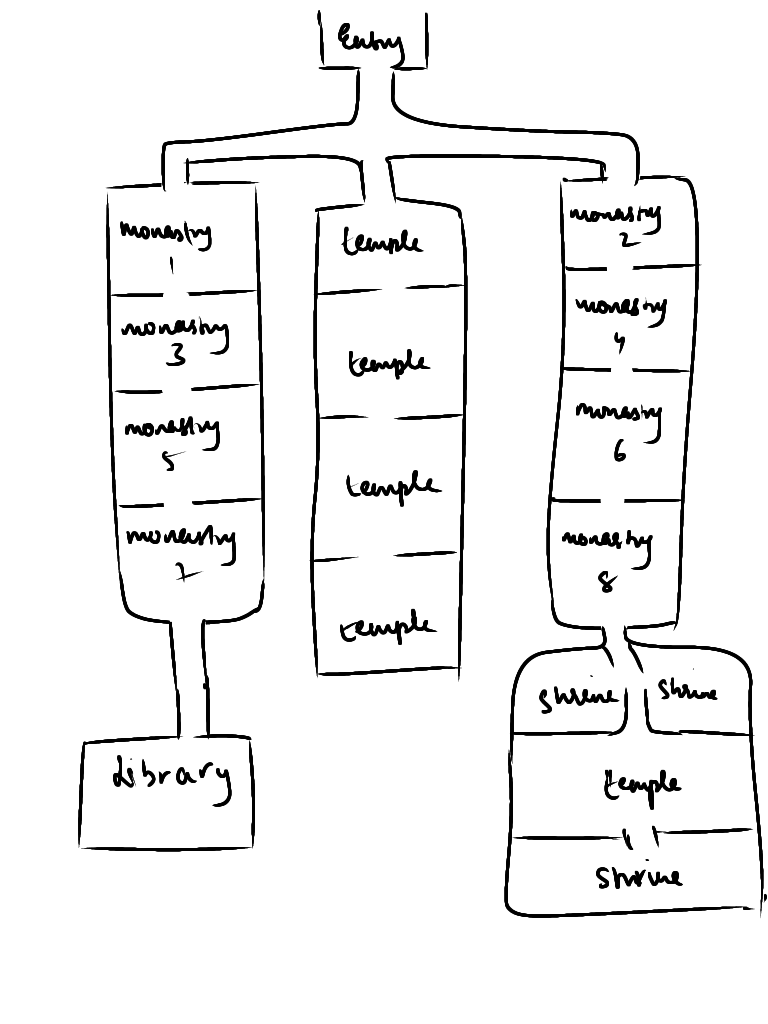 Entry
monastry
1
monastry
3
monastry
5
monastry
7
temple
temple
temple
temple
monastry
2
monastry
4
monastry
6
monastry
8
Library
shrine
shrine
temple
shrine